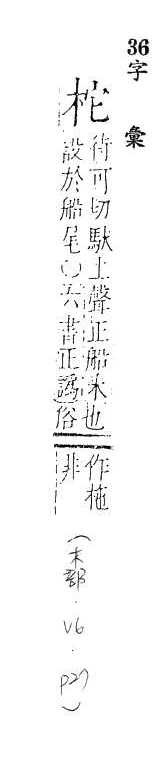 36
字彙
柁
待可切駄上聲正船木也
設於船尾○六書正譌俗
作柂
非
(木部.V6.P27)